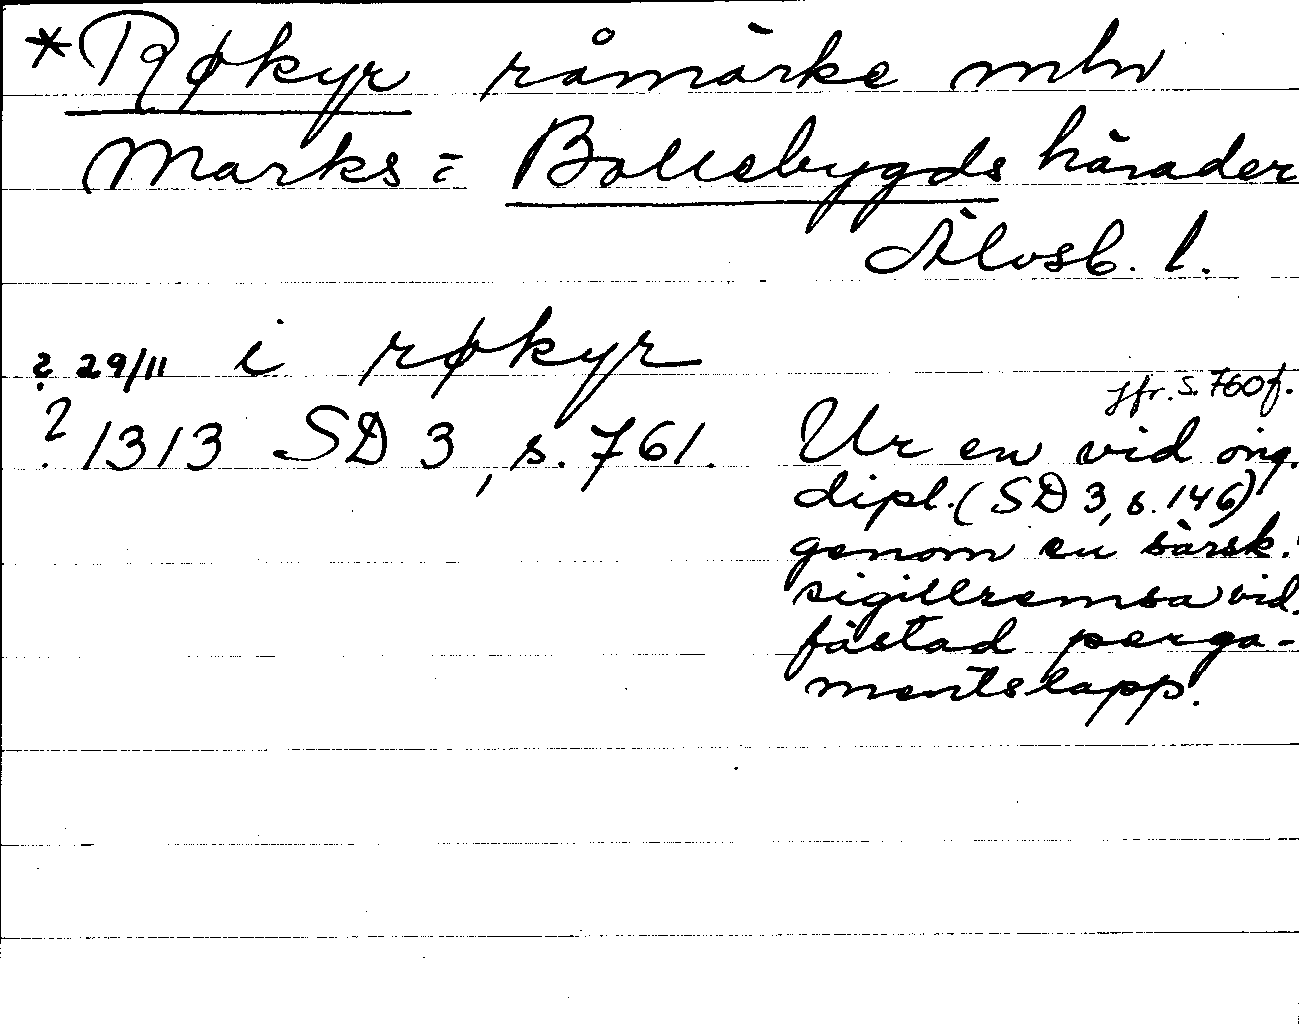 *Røkyr råmärke mln
Marks = Bollebygds härader
Älvsb. l.
? 29/11 i røkyr
? 1313 SD 3, s. 761.
jfr. s. 760 f.
Ur en vid orig.
dipl. (SD 3, s. 146)
genom en särsk.
sigillremsa vid-
fästad perga-
mentslapp.